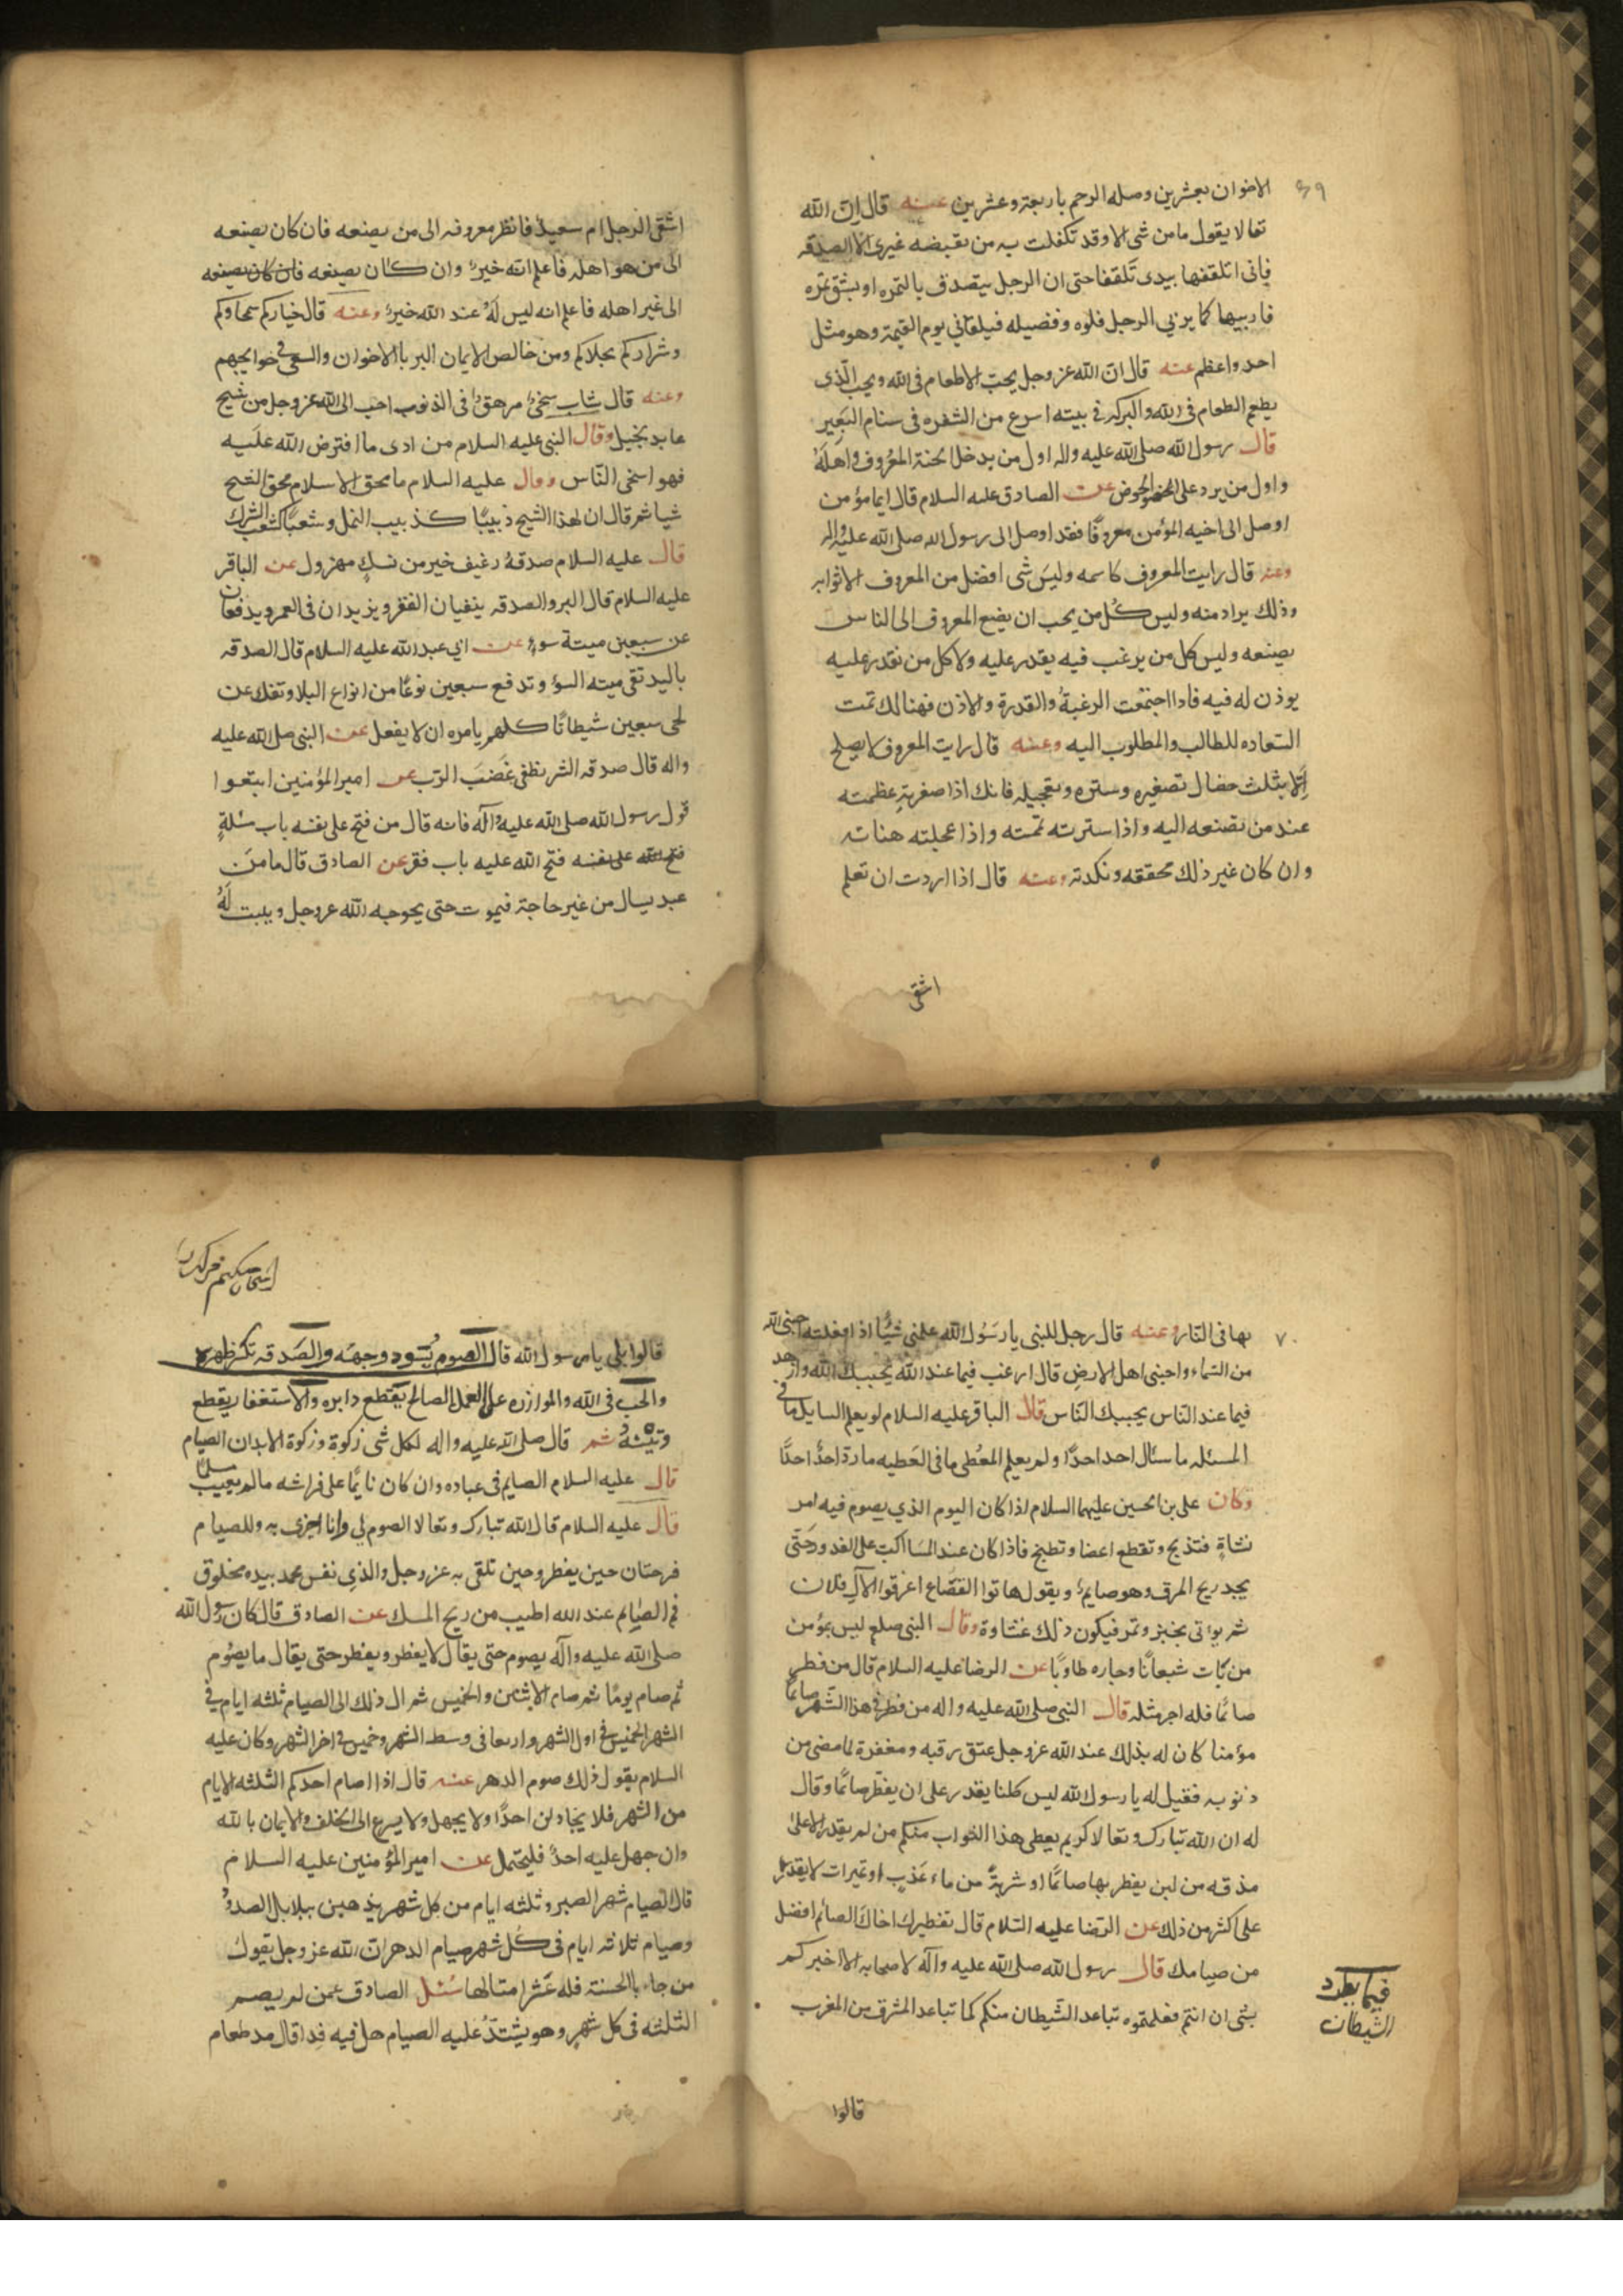 ٦٩
الاخوان بعشرين وصله الرحم باربعة وعشرين عنه قال ان الله
تعالا يقول ما من شى الا وقد تكفلت به من يقبضه غيرى الا الصدقه
فانى اتلقفها بيدى تلقفا حتى ان الرجل يتصدق بالتمره او بشق تمره
فاربيها كما يربي الرجل فلوه وفصيله فيلقاني يوم القيمة وهو مثل
احد واعظم عنه قال ان الله عز وجل يحب الاطعام فى الله ويحب الّذى
يطعم الطعام فى الله والبركه في بيته اسرع من الشفره فى سنام البَعير
قال رسول الله صلى الله عليه واله اول من يدخل الجنة المعُروف واهلَهُ
واول من يرد على الحوض عن الصادق عليه السلام قال ايما مؤمن
اوصل الى اخيه المؤمن معروفًا فقد اوصل الى رسول الله صلى الله عليه واله
وعنه قال رايت المعروف كاسمه وليسَ شى افضل من المعروف الا ثوابه
وذلك يراد منه وليس كُل من يحب ان يضع المعروف الى الناس
يصنعه وليس كل من يرغب فيه يقدر عليه ولا كل من يقدر عليه
يوذن له فيه فاذا اجتمعت الرغبةُ والقدرة والاذن فهنالك تمت
السّعاده للطالب والمطلوب اليه وعنه قال رايت المعروف لا يصلح
اِلّا بثلث خصال تصغيره وستره وتعجيله فانك اذا صغرته عظمته
عند من تصنعه اليه واذا سترته تممته واذا عجلته هناته
وان كان غير ذلك محققه ونكدته وعنه قال اذا اردت ان تعلم
اشقى
اشقى الرجل ام سعيد فانظر معروفه الى من يصنعه فان كان يصنعه
الى من هو اهله فاعلم انه خير وان كان يصنعه فان كان يصنعه
الى غير اهله فاعلم انه ليس لَهُ عند الله خير وعنه قال خياركم سمحاوكم
وشراركم بخلاكم ومن خالص الايمان البر بالاخوان والسعى فى حوايجهم
وعنه قال شاب سخى مرهق فى الذنوب احب الى الله عز وجل من شيخ
عابد بخيل وقال النبى عليه السلام من ادى ما افترض الله عليه
فهو اسخى النّاس وقال عليه السلام ما محق الاسلام محق الشح
شيا ثم قال ان لهذا الشح دبيبًا كدبيب النمل وشعبًا كشعب الشرك
قال عليه السلام صدقهُ رغيف خير من نسكٍ مهزول عن الباقر
عليه السلام قال البر والصدقه ينفيان الفقر ويزيدان فى العمر ويدفعان
عن سبعين ميتة سوءٍ عن ابي عبد الله عليه السلام قال الصدقه
باليد تقى ميته السوء وتدفع سبعين نوعًا من انواع البلا وتفك عن
لحى سبعين شيطانًا كلهم يامره ان لا يفعل عن النبى صلى الله عليه
واله قال صدقه السر تطفى غَضَبَ الرّب عن امير المؤمنين ابتعوا
قول رسول الله صلى الله عليه وآله فانه قال من فتح على نفسه باب مسئلةٍ
فتح الله على نفسه فتح الله عليه باب فقر عن الصادق قال ما من
عبد يسال من غير حاجة فيموت حتى يحوجه الله عز وجل ويثبت لَهُ
٧٠
بها فى النّار وعنه قال رجل للنبى يا رسُول الله علمنى شيًا اذا فعلته احبنى الله
من السّماء واحبنى اهل الارضِ قال ارغب فيما عند الله يحببك الله وازهد
فيما عند النّاس يحببك النّاس قال الباقر عليه السلام لو يعلم السايل ما فى
المسئله ما سئال احد احدًا ولو يعلم المعُطى ما فى العَطيه ما رد احدٌ احدًا
وكان على بن الحسين عليهما السلام اذا كان اليوم الذي يصوم فيه امر
بشاةٍ فتذبح وتقطع اعضا وتطبخ فاذا كان عند المسَا اكب على القدور حَتّى
يجد ريح المرق وهو صايم ويقول هاتوا القصَاع اغرفوا لال فلان
ثم يوتى بخبز وتمر فيكون ذلك عشاوة وقال النبى صلعم ليس بمؤمن
من بَات شبعانًا وجاره طاويًا عن الرضا عليه السلام قال من فطر
صائمًا فله اجر مثله قال النبى صلى الله عليه واله من فطر فى هذا الشّهر صائمًا
مؤمنا كان له بذلك عند الله عز وجل عتق رقبه ومغفرة لما مضى من
ذنوبه فقيل له يا رسول الله ليس كلنا يقدر على ان يفطّر صائمًا وقال
له ان الله تبارك وتعالا كريم يعطى هذا الثواب منكم من لم يقدر الا على
مذقه من لبن يفطر بها صائمًا او شربةٍ من ماء عَذبٍ او تميرات لا يقدر
على اكثر من ذلك عن الرّضا عليه السّلام قال تفطيرك اخاك الصائم افضل
من صيامك قال رسول الله صلى الله عليه وآله لاصحابه الا اخبركم
بشى ان انتم فعلمتموه تباعد الشّيطان منكم كما تباعد المشرق من المغرب
فيما يطرد
الشيطان
قالوا
قالوا بلى يا رسول الله قال الصوم يُسَود وجهَه والصَدقه تكسر ظهره
والحَب فى الله والموازره على العمل الصالح يَقطع دابره والاستغفار يقطع
وتينهُ ثم قال صلى الله عليه واله لكل شى زكوة وزكوة الابدان الصيام
قال عليه السلام الصايم فى عباده وان كان نايمًا على فراشه ما لم يغيب مسلمًا
قال عليه السلام قال الله تبارك وتعالا الصوم لي وانا اجزى به وللصيام
فرحتان حين يفطر وحين تلقى به عز وجل والذي نفس محمد بيده مخلوق
فم الصَايم عند الله اطيب من ريح المسك عن الصادق قال كان رسول الله
صلى الله عليه وآله يصوم حتى يقال لا يفطر ويفطر حتى يقال ما يصُوم
ثم صام يومًا ثم صام الاثنين والخميس ثم ال ذلك الى الصيام ثلثه ايام في
الشهر الخميس فى اول الشهر واربعا فى وسط الشهر وخميس فى اخر الشهر وكان عليه
السلام يقول ذلك صوم الدهر عنه قال اذا صام احدكم الثلثه الايام
من الشهر فلا يجادلن احدًا ولا يجهل ولا يسرع الى الحلف والايمان بالله
وان جهل عليه احدٌ فليحتمل عن امير المؤمنين عليه السلام
قال الصيام شهر الصبر وثلثه ايام من كل شهر يذهبن ببلابل الصدورُ
وصيام ثلاثه ايام فى كُل شهر صيام الدهر ان الله عز وجل يقول
من جاء بالحسنة فله عَشر امثالها سُئل الصادق عمن لم يصم
الثلثه فى كل شهر وهو يشتدّ عليه الصيام هل فيه فدا قال مد طعام